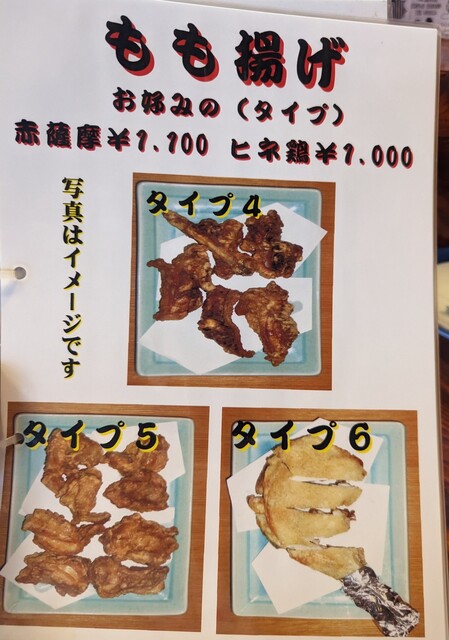 もも揚げ
お好みの(タイプ)
赤薩摩¥1,100 ヒネ鶏¥1,000
写真はイメージです
タイプ4
タイプ5
タイプ6